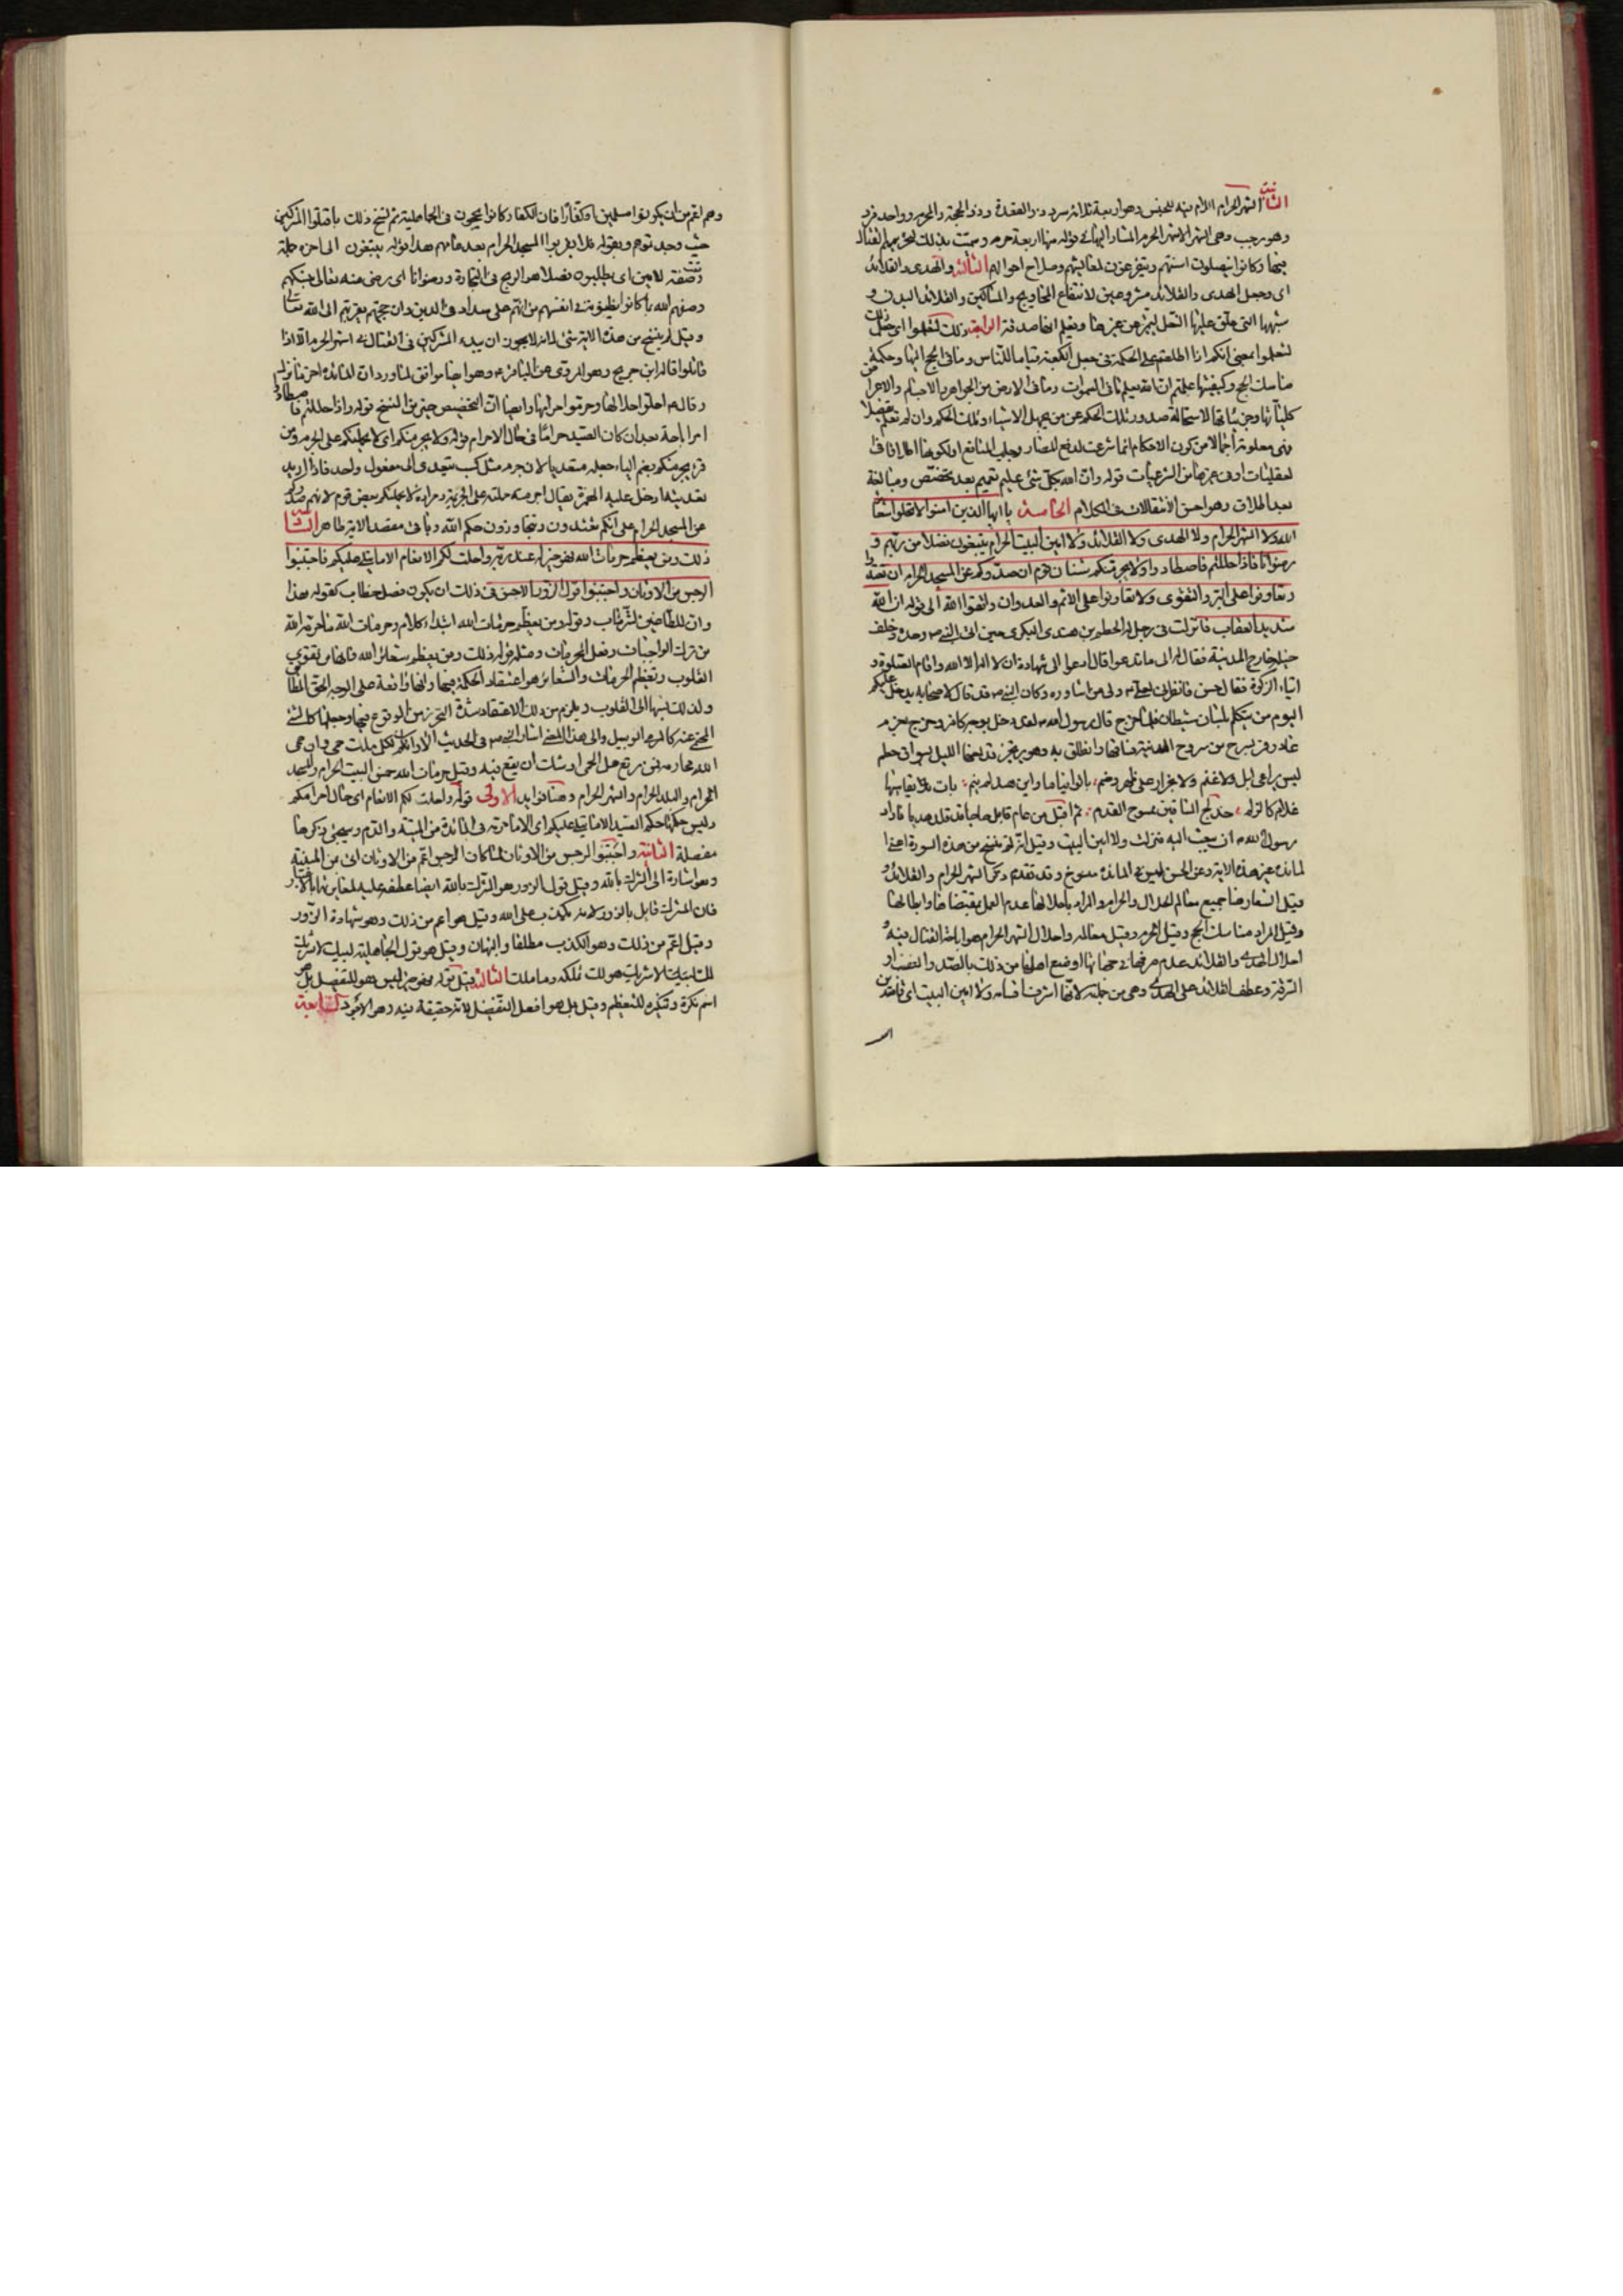 الثانية الشهر الحرام اللام فيه للجنس وهو اربعة ثلاثة سرد ذو القعدة وذو الحجة والمحرم وواحد فرد
وهو رجب وهى الشهر الاشهر الحرم المشار اليها فى قوله منها اربعة حرم وسميت بذلك لتحريمهم القتال
فيها وكانوا ينصلون اسنتهم ويتفرغون لمعايشهم وصلاح احوالهم الثالثة والهدى والقلائد
اى وجعل الهدى والقلائد مشروعين لانتفاع المحاويج والمساكين والقلائد البدن و
شبهها التى علق عليها النعل ليتميز عن غيرها ويعلم انها صدقة الرابعة ذلك لتعلموا اى جعل ذلك
لتعلموا بمعنى انكم اذا اطلعتم على الحكمة فى جعل الكعبة قياما للناس وما فى الحج اليها وحكمة
مناسك الحج وكيفيتها علمتم ان الله يعلم ما فى السموات وما فى الارض من الجواهر والاجسام والاعراض
كلياتها وجزئياتها لاستحالة صدور تلك الحكم عن من يجهل الاشياء وتلك الحكم وان لم تعلم تفصيلا
فهى معلومة اجمالا من كون الاحكام انما شرعت لدفع المضار وجلب المنافع او لكونها الطافا فى
العقليات او فى غيرها من الشرعيات قوله وان الله بكل شئ عليم تعميم بعد تخصيص ومبالغة
بعد اطلاق وهو احسن الانتقالات فى الكلام الخامسة يا ايها الذين امنوا لا تحلوا شعائر
الله ولا الشهر الحرام ولا الهدى ولا القلائد ولا امين البيت الحرام يبتغون فضلا من ربهم و
رضوانا فاذا حللتم فاصطادوا ولا يجرمنكم شنان قوم ان صدوكم عن المسجد الحرام ان تعتدوا
وتعاونوا على البر والتقوى ولا تعاونوا على الاثم والعدوان واتقوا الله الى قوله ان الله
شديد العقاب نزلت فى رجل له الحطم بن هندى البكرى حين اتى النبى ص وحده وخلف
خيله خارج المدينة فقال له الى ما تدعو قال ادعوا الى شهادة ان لا اله الا الله واقام الصلوة و
ايتاء الزكوة فقال حسن فانظرنى ولى من اشاوره وكان النبى ص قد قال لاصحابه يدخل عليكم
اليوم من يتكلم بلسان شيطان فلما خرج قال رسول الله ص لقد دخل بوجه كافر وخرج بعزم
غادر فمر بسرح من سروح المدينة فساقها وانطلق به وهو يرتجز قد لفها الليل بسواق حطم
ليس براعى ابل ولا غنم ولا بجزار على ظهر وضم باتوا نياما وابن هند لم ينم بات يقاسيها
غلام كالزلم خدلج الساقين ممسوح القدم ثم اقبل من عام قابل حاجا قد قلد هديا فاراد
رسول الله ص ان يبعث اليه فنزلت ولا امين البيت وقيل انه لم ينسخ من هذه السورة اعنى
المائدة غير هذه الاية وعن الحسن ليس فى المائدة منسوخ وقد تقدم ذكر الشهر الحرام والقلائد
وقيل الشعائر هنا جميع معالم الحلال والحرام والمراد باحلالها عدم العمل بمقتضاها وابطالها
وقيل المراد مناسك الحج وقيل الحرم وقيل معالمه واحلال الشهر الحرام هو اباحة القتال فيه و
احلال الهدى والقلائد عدم صرفها فى جهاتها او وضع اهلها من ذلك بالصد والغصب او
السرقة وعطف القلائد على الهدى وهى من جملته لانها اشرف اقسامه ولا امين البيت اى قاصدين
وهم اعم من ان يكونوا مسلمين او كفارا فان الكفار كانوا يحجون فى الجاهلية ثم نسخ ذلك باقتلوا المشركين
حيث وجدتموهم وبقوله فلا يقربوا المسجد الحرام بعد عامهم هذا قوله يبتغون الى اخره جملة
وقعت صفة لامين اى يطلبون فضلا هو الربح فى التجارة ورضوانا اى يرضى عنه تعالى بنسكهم
وصفهم الله بما كانوا يظنونه فى انفسهم من انهم على سداد فى الدين وان حجهم يقربهم الى الله تعالى
وقيل لم ينسخ من هذه الاية شئ لانه لا يجوز ان يبدء المشركين فى القتال فى اشهر الحرم الا اذا
قاتلوا قاله ابن جريج وهو المروى عن الباقر ع وهو ايضا موافق لما ورد ان المائدة اخر ما نزل
وقال ص احلوا حلالها وحرموا حرامها وايضا ان التخصيص خير من النسخ قوله واذا حللتم فاصطادوا
امر اباحة بعد ان كان الصيد حراما فى حال الاحرام قوله ولا يجرمنكم اى لا يحملنكم على الجرم ومن
قرء يجرمنكم بضم الياء جعله متعديا لان جرم مثل كسب يتعدى الى مفعول واحد فاذا اريد
تعديته ادخل عليه الهمزة يقال اجرمته حملته على الجريمة ومراده لا يحملنكم بعض قوم لانهم صدوكم
عن المسجد الحرام على انكم تعتدون وتتجاوزون حكم الله وباقى مقصد الاية ظاهر السادسة
ذلك ومن يعظم حرمات الله فهو خير له عند ربه واحلت لكم الانعام الا ما يتلى عليكم فاجتنبوا
الرجس من الاوثان واجتنبوا قول الزور الاحسن فى ذلك ان يكون فصل خطاب كقوله هذا
وان للطاغين لشر مآب وقوله ومن يعظم حرمات الله ابتداء كلام وحرمات الله ما حرمه الله
من ترك الواجبات وفعل المحرمات ومثله قوله ذلك ومن يعظم شعائر الله فانها من تقوى
القلوب وتعظيم الحرمات والشعائر هو اعتقاد الحكمة فيها وانها واقعة على الوجه الحق المطابق
ولذلك نسبها الى القلوب ويلزم من ذلك الاعتقاد شدة التحرز من الوقوع فيها وجعلها كالشئ
المحتمى عنه كالمرعى الوبيل والى هذا المعنى اشار النبى ص فى الحديث الا وان لكل ملك حمى وان حمى
الله محارمه فمن رتع حول الحمى اوشك ان يقع فيه وقيل حرمات الله خمس البيت الحرام والمسجد
الحرام والبلد الحرام والشهر الحرام وهنا فوايد الاولى قوله واحلت لكم الانعام اى حال احرامكم
وليس حكمها حكم الصيد الا ما يتلى عليكم اى الا ما حرمه فى المائدة من الميتة والدم وسيجئ ذكرها
مفصلة الثانية واجتنبوا الرجس من الاوثان لما كان الرجس اعم من الاوثان اتى من المبينة
وهو اشارة الى الشرك بالله وقيل قول الزور هو الشرك بالله ايضا عطفه عليه لتغايرها بالاعتبار
فان المشرك قابل بالزور لانه يكذب على الله وقيل هو اعم من ذلك وهو شهادة الزور
وقيل اعم من ذلك وهو الكذب مطلقا والبهتان وقيل هو قول الجاهلية لبيك لا شريك
لك لبيك الا شريك هو لك تملكه وما ملك الثالثة قيل قوله فهو خير ليس هو للتفضيل بل هو
اسم نكرة وتنكيره للتعظيم وقيل بل هو افعل التفضيل لانه حقيقة فيه وهو الاجود السابعة